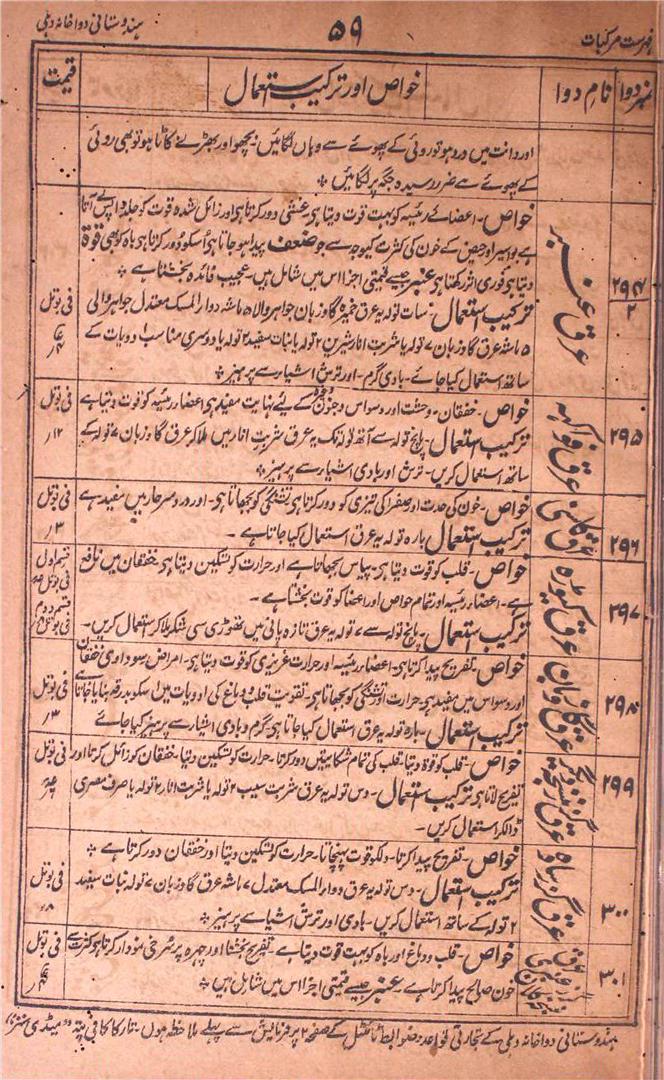 فہرست مرکبات ۵۹ ہندوستانی دواخانہ دہلی
نمبر دوا نام دوا خواص اور ترکیب استعمال قیمت
اور دانت میں درد ہو تو روئی کے پھوئے سے وہاں لگائیں۔ بچھو اور بھڑ نے کاٹا ہو تو بھی روئی
کے پھوئے سے ضرر رسیدہ جگہ پر لگائیں ٭
۲۹۴ عرق عنبر
۲
خواص۔ اعضائے رئیسہ کو بہت قوت دیتا ہی غشی دور کرتا ہی اور زائل شدہ قوت کو جلد واپس لے آتا
ہے بواسیر اور حیض کے خون کی کثرت کیوجہ سے جو ضعف پیدا ہو جاتا ہی اُسکو دُور کرتا ہی باہ کو بھی قوۃ
دیتا ہی فوری اثر رکھتا ہی عنبر جیسے قیمتی اجزا اس میں شامل ہیں۔ عجیب فائدہ بخشتا ہے ٭
ترکیب استعمال: سات تولہ یہ عرق خمیرہ گاوزبان جواہر والا ۵ ماشہ دوار المسک معتدل جواہر والی
۵ ماشہ عرق گاوزبان ۷ تولہ یا شربت انار شیریں ۲ تولہ یا نبات سفید ۲ تولہ یا دوسری مناسب ادویات کے
ساتھ استعمال کیا جائے۔ بادی گرم۔ اور ترش اشیار سے پرہیز ٭
فی بوتل
۲۹۵ عرق فواکہہ
خواص۔ خفقان۔ وحشت اور وسواس و جنون کے لئے نہایت مفید ہی اعضار رئیسہ کو قوت دیتا ہے
ترکیب استعمال۔ پانچ تولہ سے آٹھ تولہ تک یہ عرق شربت انار میں ملا کر عرق گاوزبان ۷ تولہ کے
ساتھ استعمال کریں۔ ترش اور بادی اشیار سے پرہیز ٭
فی بوتل
۱۲ ر
۲۹۶ عرق کاسنی
خواص۔ خون کی حدت اور صفرا کی تیزی کو دور کرتا ہی تشنگی کو بجھاتا ہی۔ اور درد سر حار میں مفید ہے
ترکیب استعمال بارہ تولہ یہ عرق استعمال کیا جاتا ہے۔
فی بوتل
۳ ر
۲۹۷ عرق کیوڑہ
خواص۔ قلب کو قوت دیتا ہی۔ پیاس بجھاتا ہے اور حرارت کو تسکین دیتا ہی خفقان میں نافع
ہے۔ اعضار رئیسہ اور تمام حواس اور اعضا کو قوت بخشتا ہے۔
ترکیب استعمال۔ پانچ تولہ سے ۷ تولہ یہ عرق تازہ پانی میں تھوڑی سی شکر ملا کر استعمال کریں۔
قسم اول
فی بوتل
قسم دوم
فی بوتل
۲۹۸ عرق گاوزبان
خواص۔ تفریح پیدا کرتا ہی۔ اعضار رئیسہ اور حرارت غریزی کو قوت دیتا ہی۔ امراض سوداوی خفقان
اور وسواس میں مفید ہی حرارت اور تشنگی کو بجھاتا ہی۔ تقویت قلب و دماغ کی ادویات میں اسکو بدرقہ بنایا جاتا ہے
ترکیب استعمال۔ بارہ تولہ یہ عرق استعمال کیا جاتا ہی گرم و بادی اشیار سے پرہیز کیا جائے
فی بوتل
۳ ر
۲۹۹
خواص۔ قلب کو قوۃ دیتا۔ قلب کی تمام شکایتیں دور کرتا۔ حرارت کو تسکین دیتا۔ خفقان کو زائل کرتا اور
تفریح لاتا ہی ترکیب استعمال۔ دس تولہ یہ عرق شربت سیب ۲ تولہ یا شربت انار ۲ تولہ یا صرف مصری
ڈالکر استعمال کریں۔
فی بوتل
۳۰۰ عرق گزر سادہ
خواص۔ تفریح پیدا کرتا۔ دلکو قوت پہنچاتا۔ حرارت کو تسکین دیتا اور خفقان دور کرتا ہے ٭
ترکیب استعمال۔ دس تولہ یہ عرق دوار المسک معتدل ۷ ماشہ عرق گاوزبان ۷ تولہ نبات سفید
۲ تولہ کے ساتھ استعمال کریں۔ بادی اور ترش اشیائے پرہیز ٭
فی بوتل
۳۰۱ عرق گزر
خواص۔ قلب و دماغ اور باہ کو بہت قوت دیتا ہے۔ تفریح بخشتا اور چہرہ پر سُرخی نمودار کرتا ہو کثرت سے
خون صالح پیدا کرتا ہے۔ عنبر جیسے قیمتی اجزا اس میں شامل ہیں ٭
فی بوتل
ہندوستانی دواخانہ دہلی کے تجارتی قواعد و ضوابط ٹائٹل کے صفحہ ۲ پر فرمایش سے پہلے ملاحظہ ہوں۔ تار کا کافی پتہ "میڈی سنز"